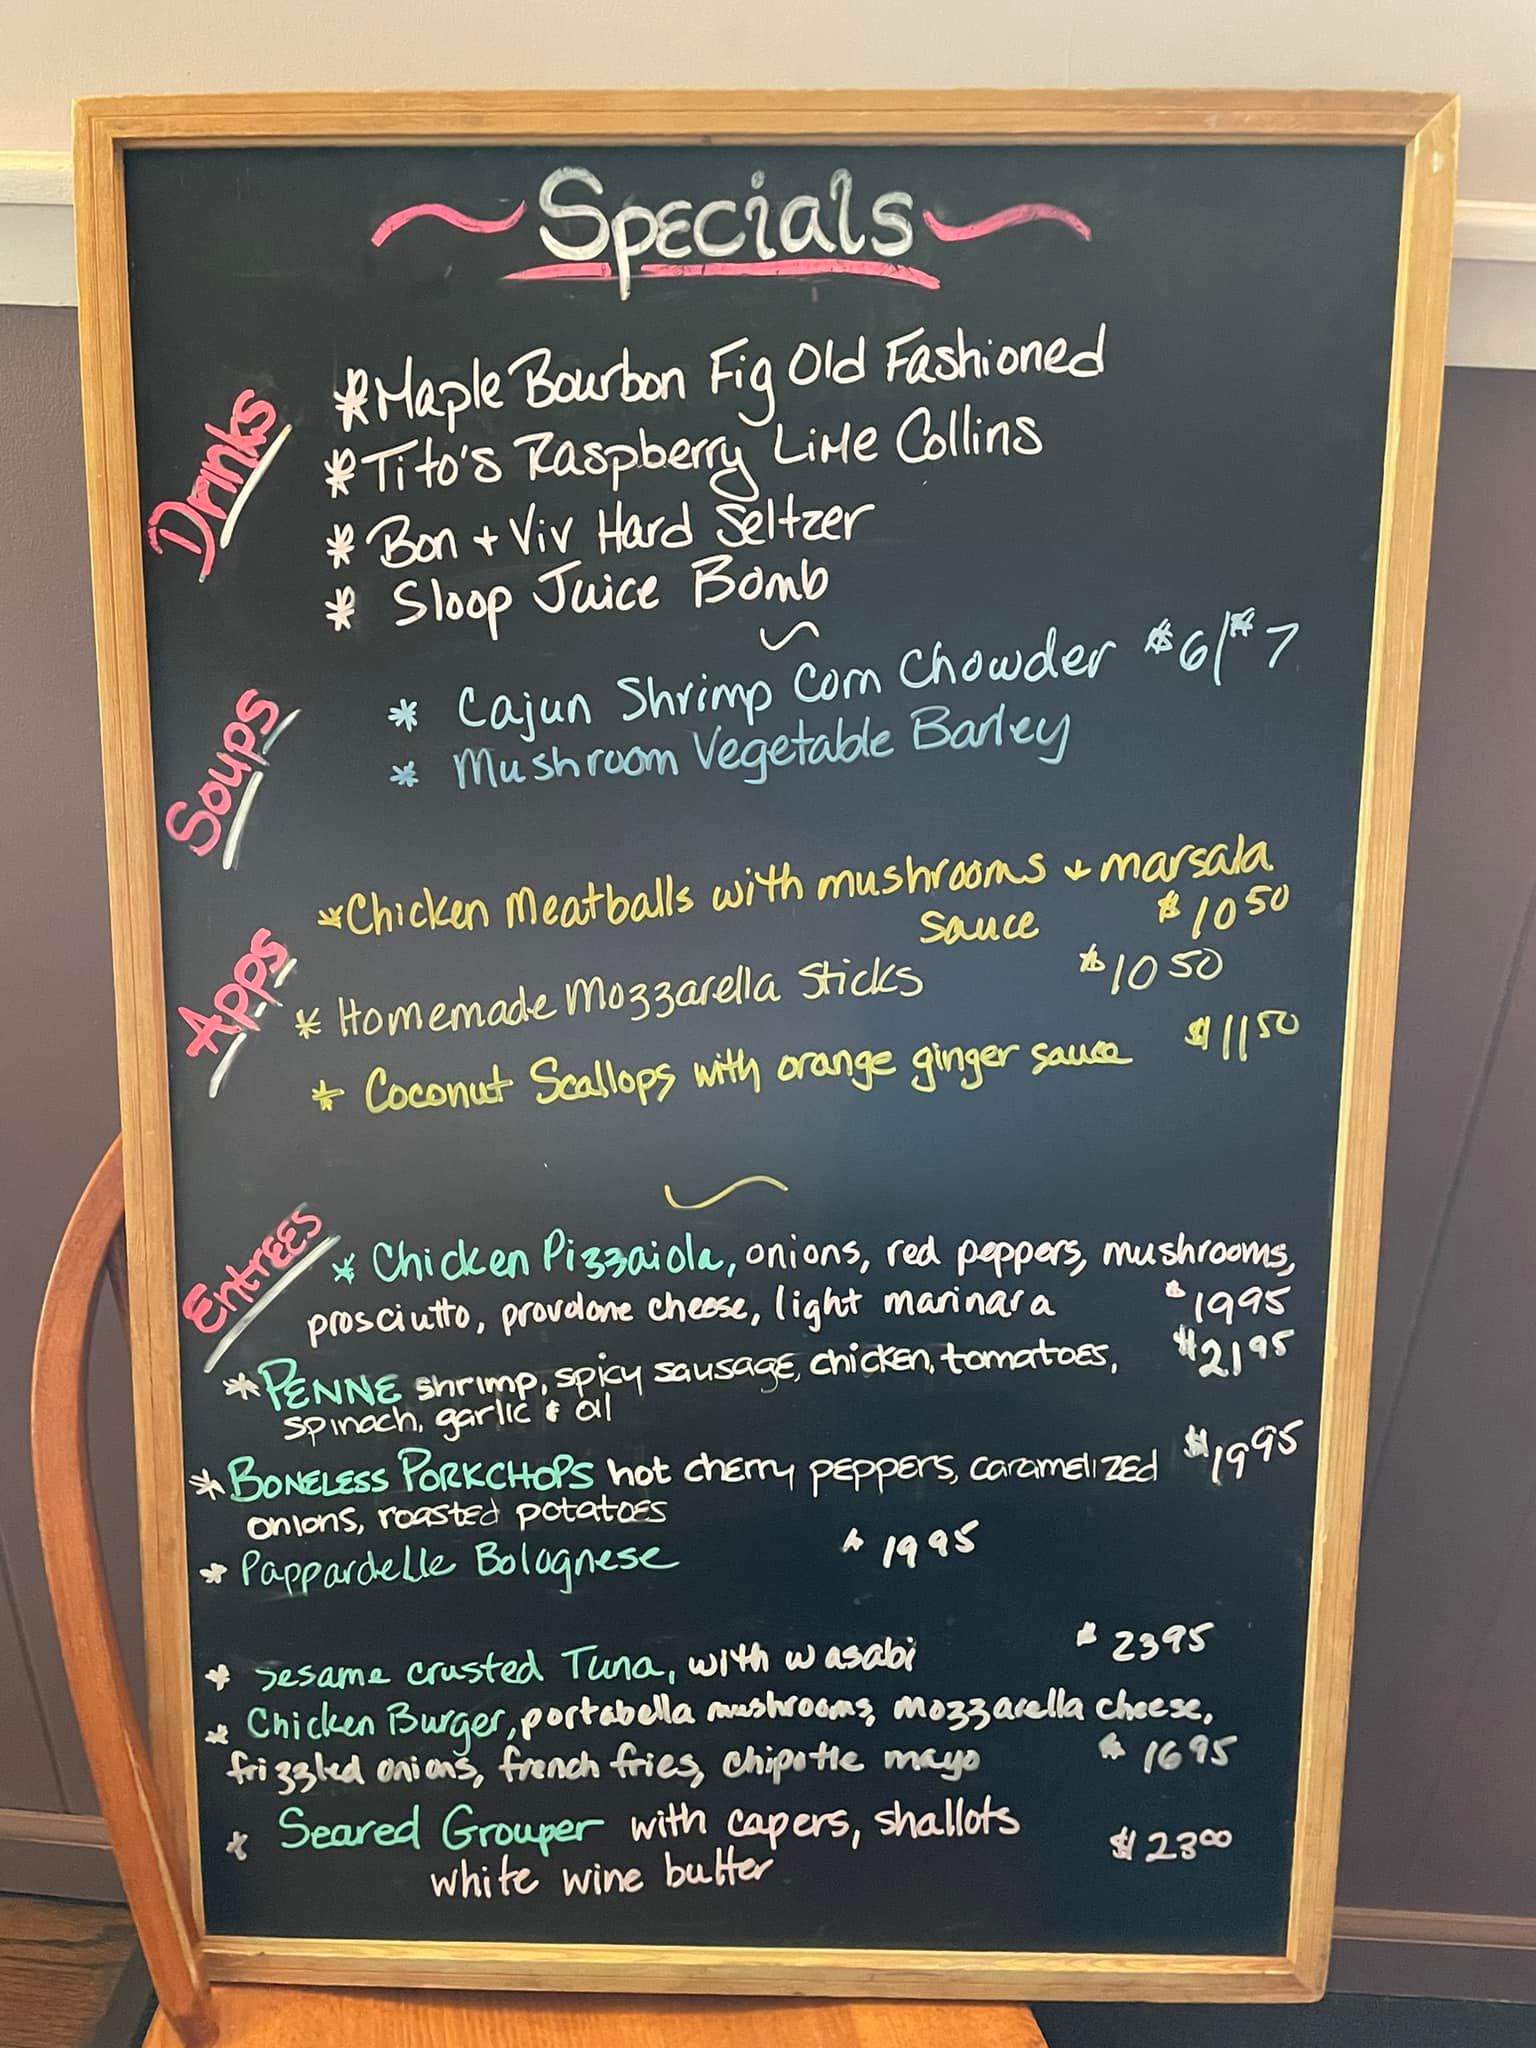 Specials
Drinks
*Maple Bourbon Fig Old Fashioned
*Tito's Raspberry Lime Collins
* Bon + Viv Hard Seltzer
* Sloop Juice Bomb
Soups
* Cajun Shrimp Corn Chowder $6/$7
* Mushroom Vegetable Barley
Apps
*Chicken Meatballs with mushrooms + marsala
sauce $10 50
* Homemade Mozzarella Sticks $10 50
* Coconut Scallops with orange ginger sauce $11 50
Entrees
* Chicken Pizzaiola, onions, red peppers, mushrooms,
prosciutto, provolone cheese, light marinara $19 95
*PENNE shrimp, spicy sausage, chicken, tomatoes, $21 95
spinach, garlic & oil
*BONELESS PORKCHOPS hot cherry peppers, caramelized $19 95
onions, roasted potatoes
* Pappardelle Bolognese $19 95
* Sesame crusted Tuna, with wasabi $23 95
* Chicken Burger, portabella mushrooms, mozzarella cheese,
frizzled onions, french fries, chipotle mayo $16 95
* Seared Grouper with capers, shallots $23 00
white wine butter